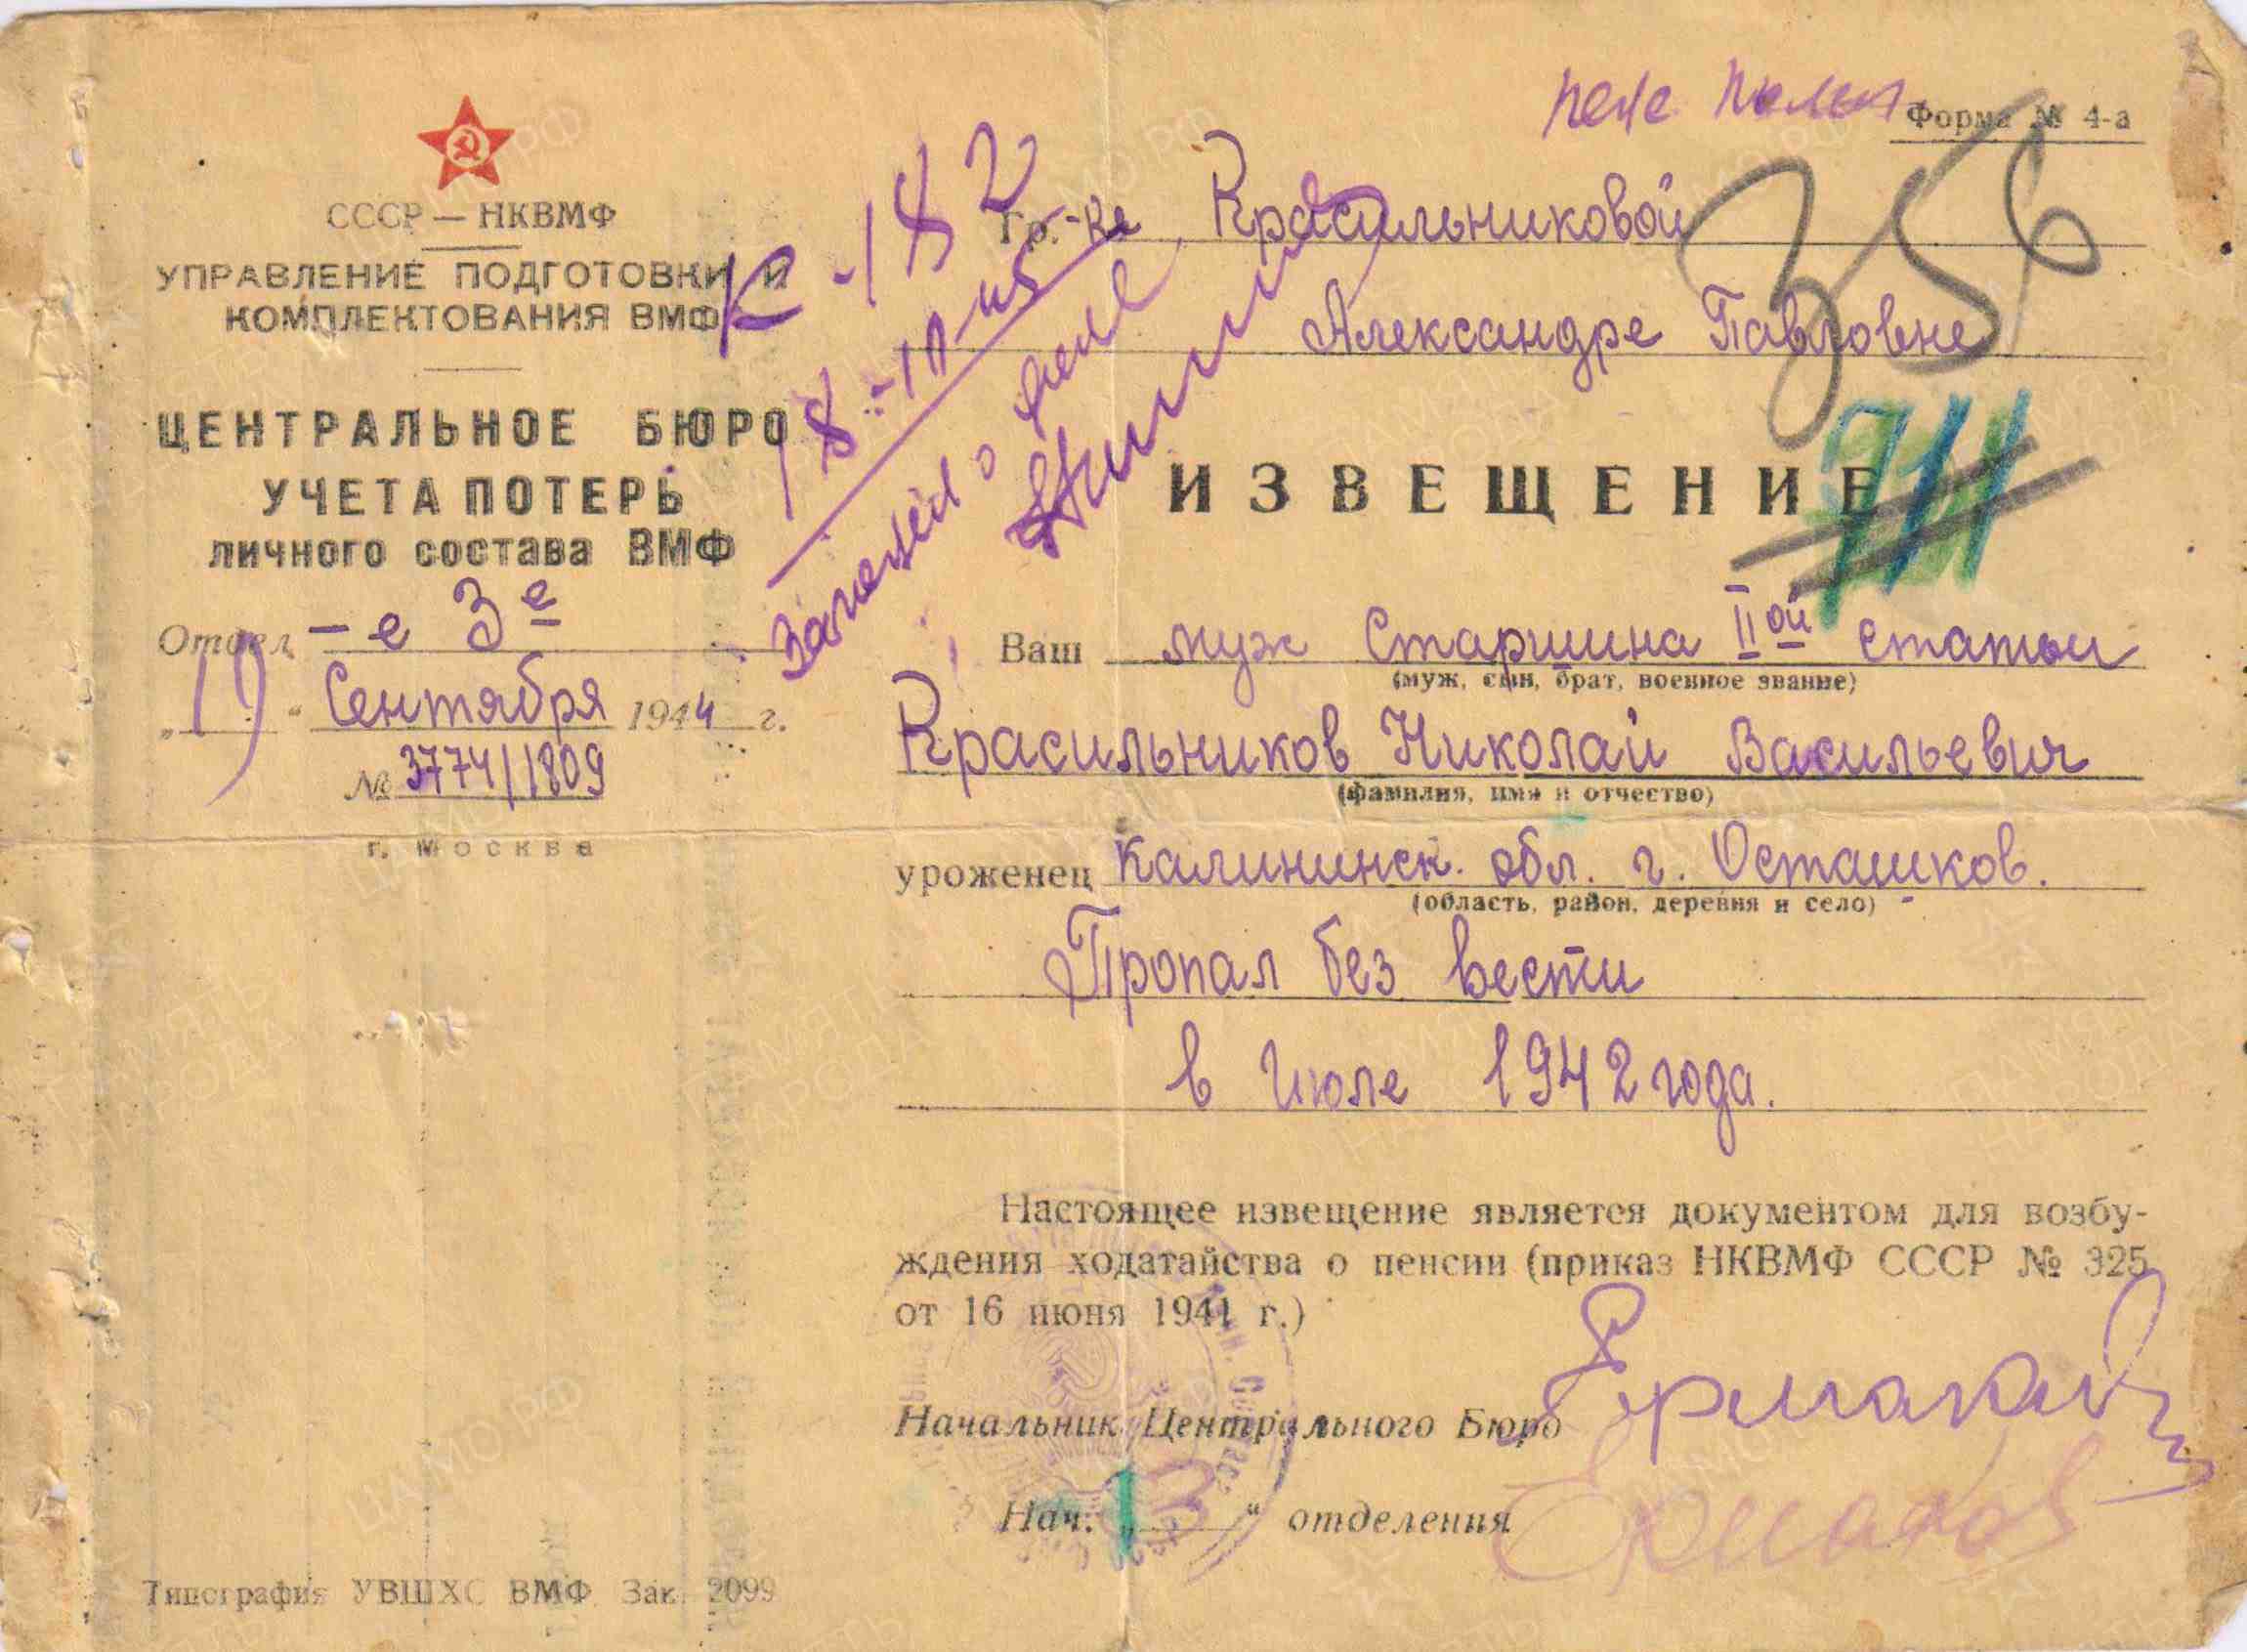 СССР — НКВМФ
УПРАВЛЕНИЕ ПОДГОТОВКИ И
КОМПЛЕКТОВАНИЯ ВМФ
ЦЕНТРАЛЬНОЕ БЮРО
УЧЕТА ПОТЕРЬ
личного состава ВМФ
Отдел -е 3е
„19“ Сентября 1944 г.
№ 3774/1809
г. Москва
Типография УВШХС ВМФ Зак. 2099
К-182
18-10-45
Форма № 4-а
356
Гр.-ке Красильниковой
Александре Павловне
ИЗВЕЩЕНИЕ
Ваш муж Старшина IIой статьи
(муж, сын, брат, военное звание)
Красильников Николай Васильевич
(фамилия, имя и отчество)
уроженец Калининск. обл. г. Осташков.
(область, район, деревня и село)
Пропал без вести
в Июле 1942 года.
Настоящее извещение является документом для возбу-
ждения ходатайства о пенсии (приказ НКВМФ СССР № 325
от 16 июня 1941 г.)
Начальник Центрального Бюро
Нач. „3“ отделения
Ермаков
ЦАМО.РФ
ПАМЯТЬ НАРОДА